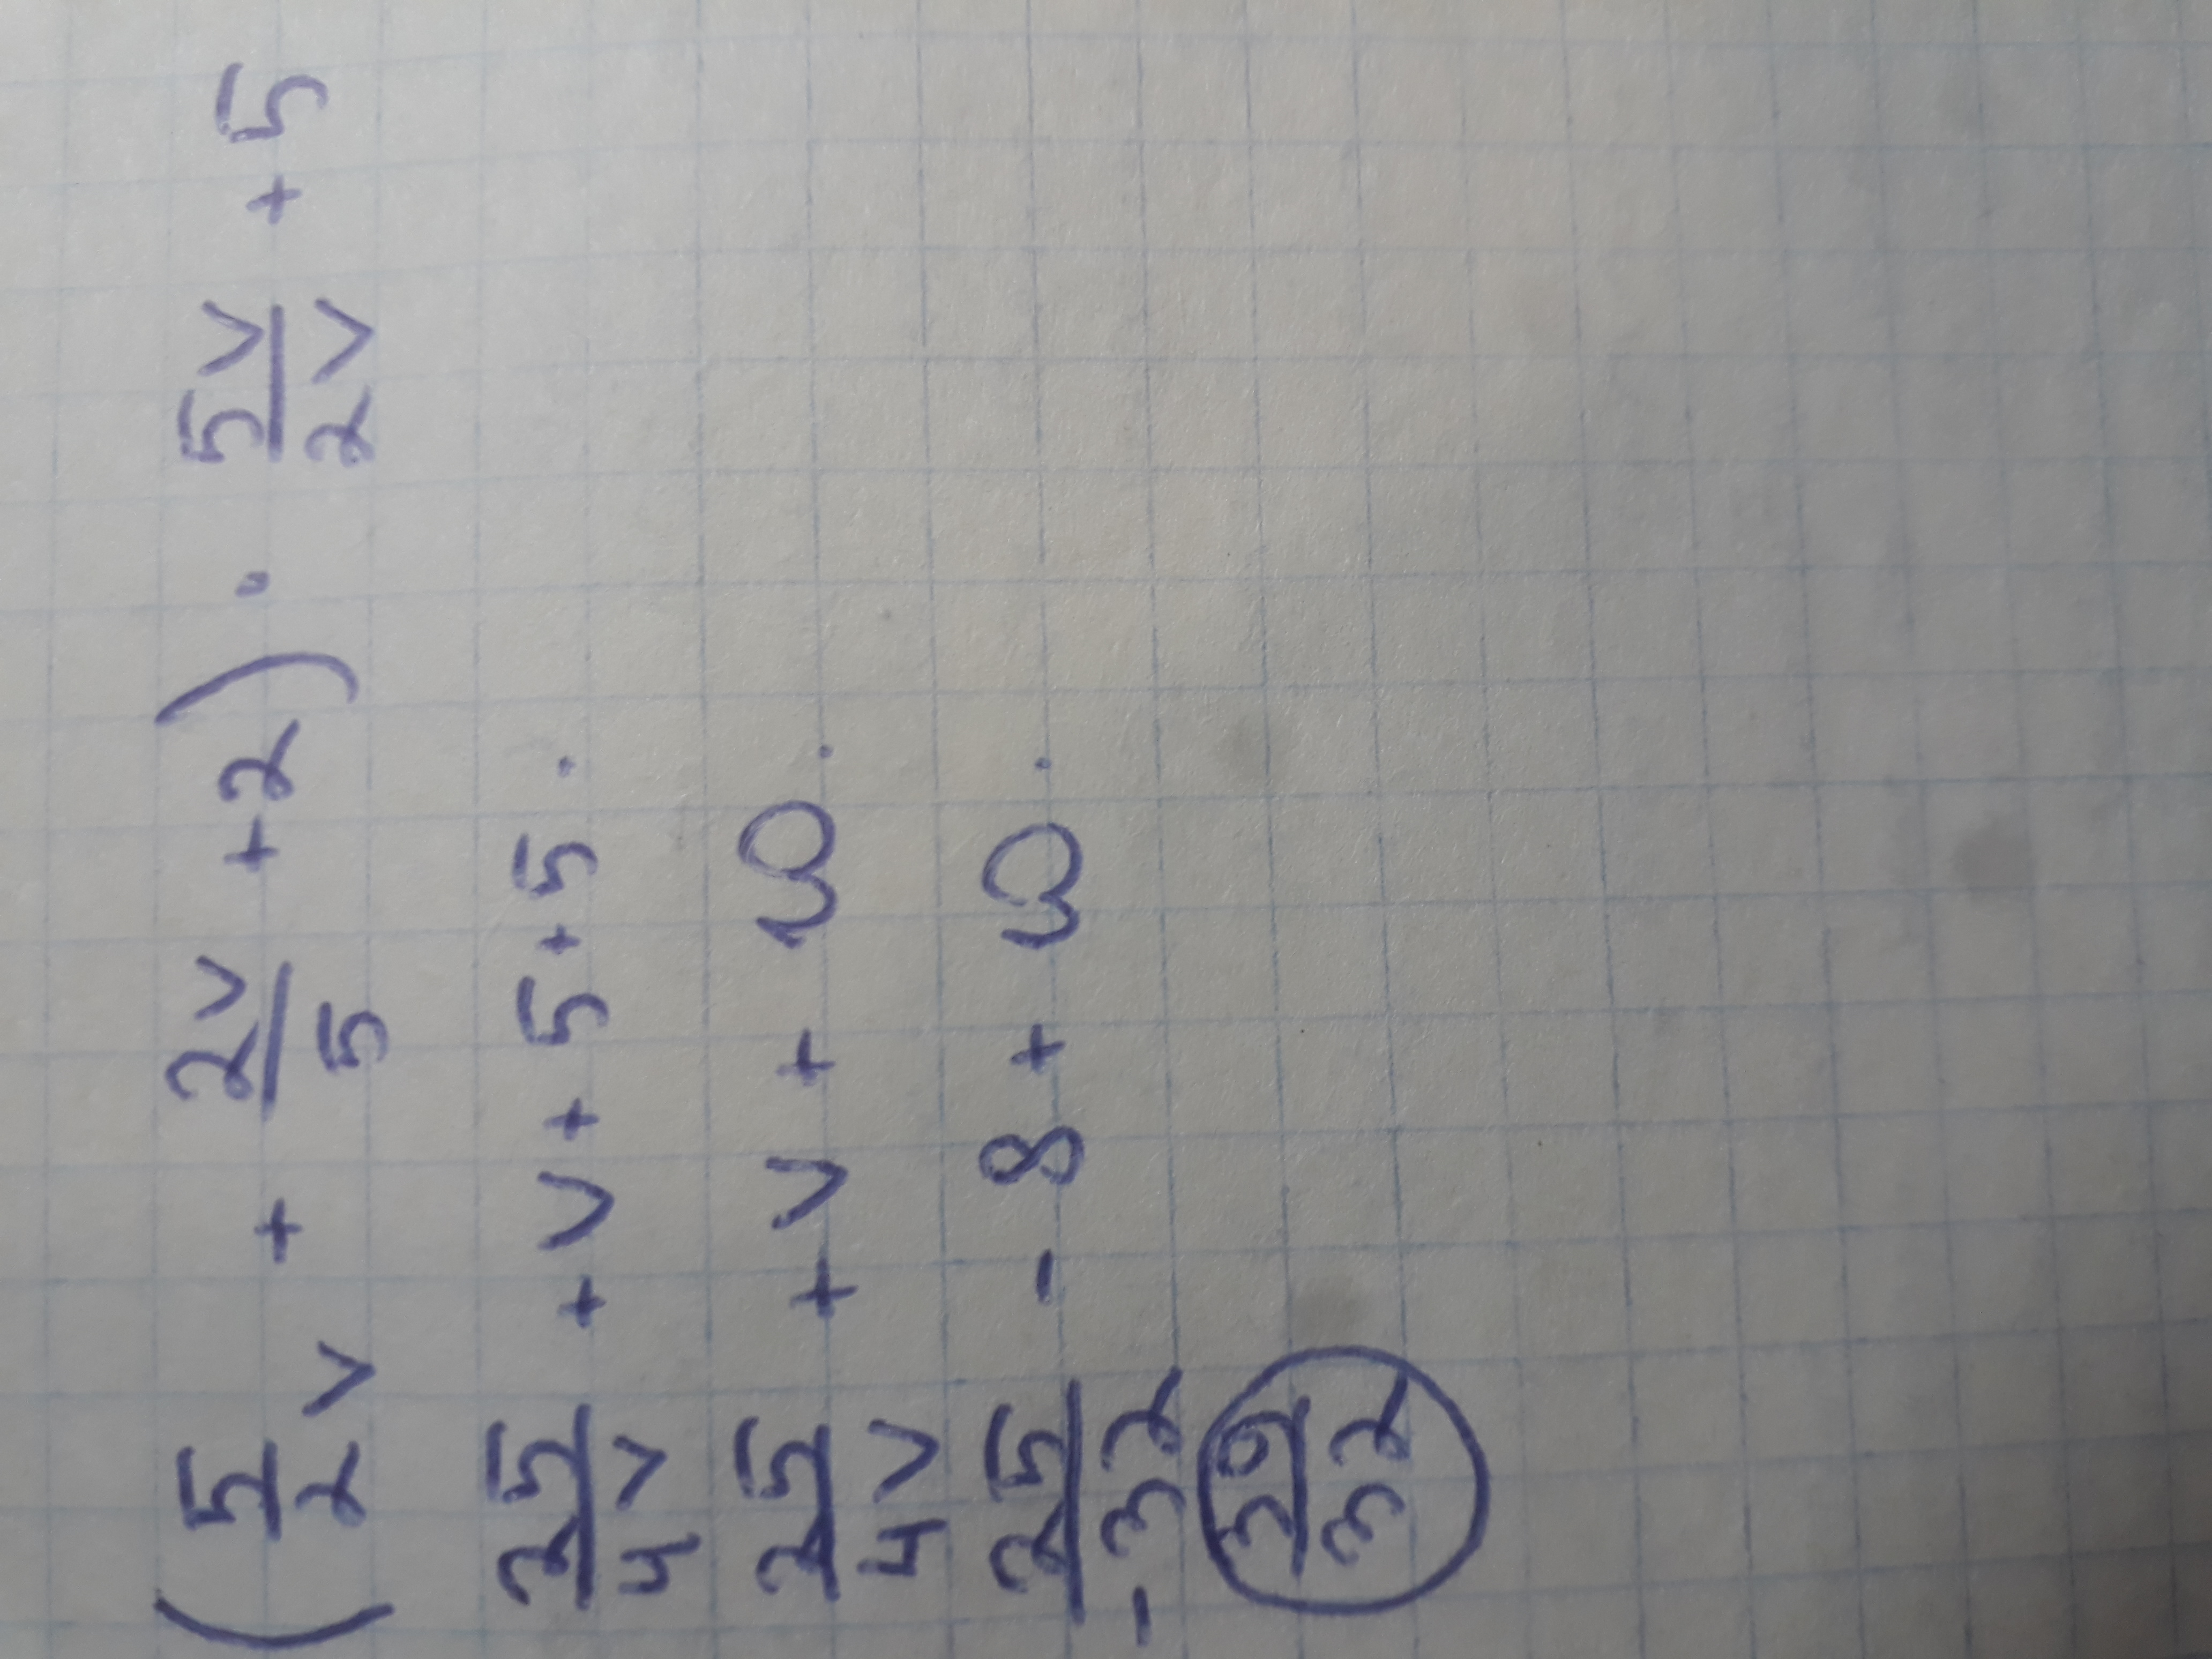 (5/2v + 2v/5 + 2) · 5v/2v + 5
25/4v + v + 5 + 5.
25/4v + v + 10.
25/-32 - 8 + 10.
39/32